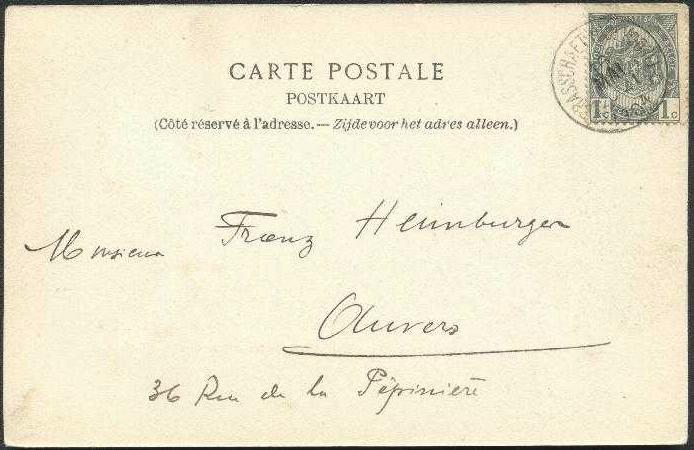 CARTE POSTALE
POSTKAART
(Côté réservé à l'adresse. — Zijde voor het adres alleen.)
BRASSCHAET
1c 1c
Monsieur Franz Heimburger
Anvers
36 Rue de la Pépinière